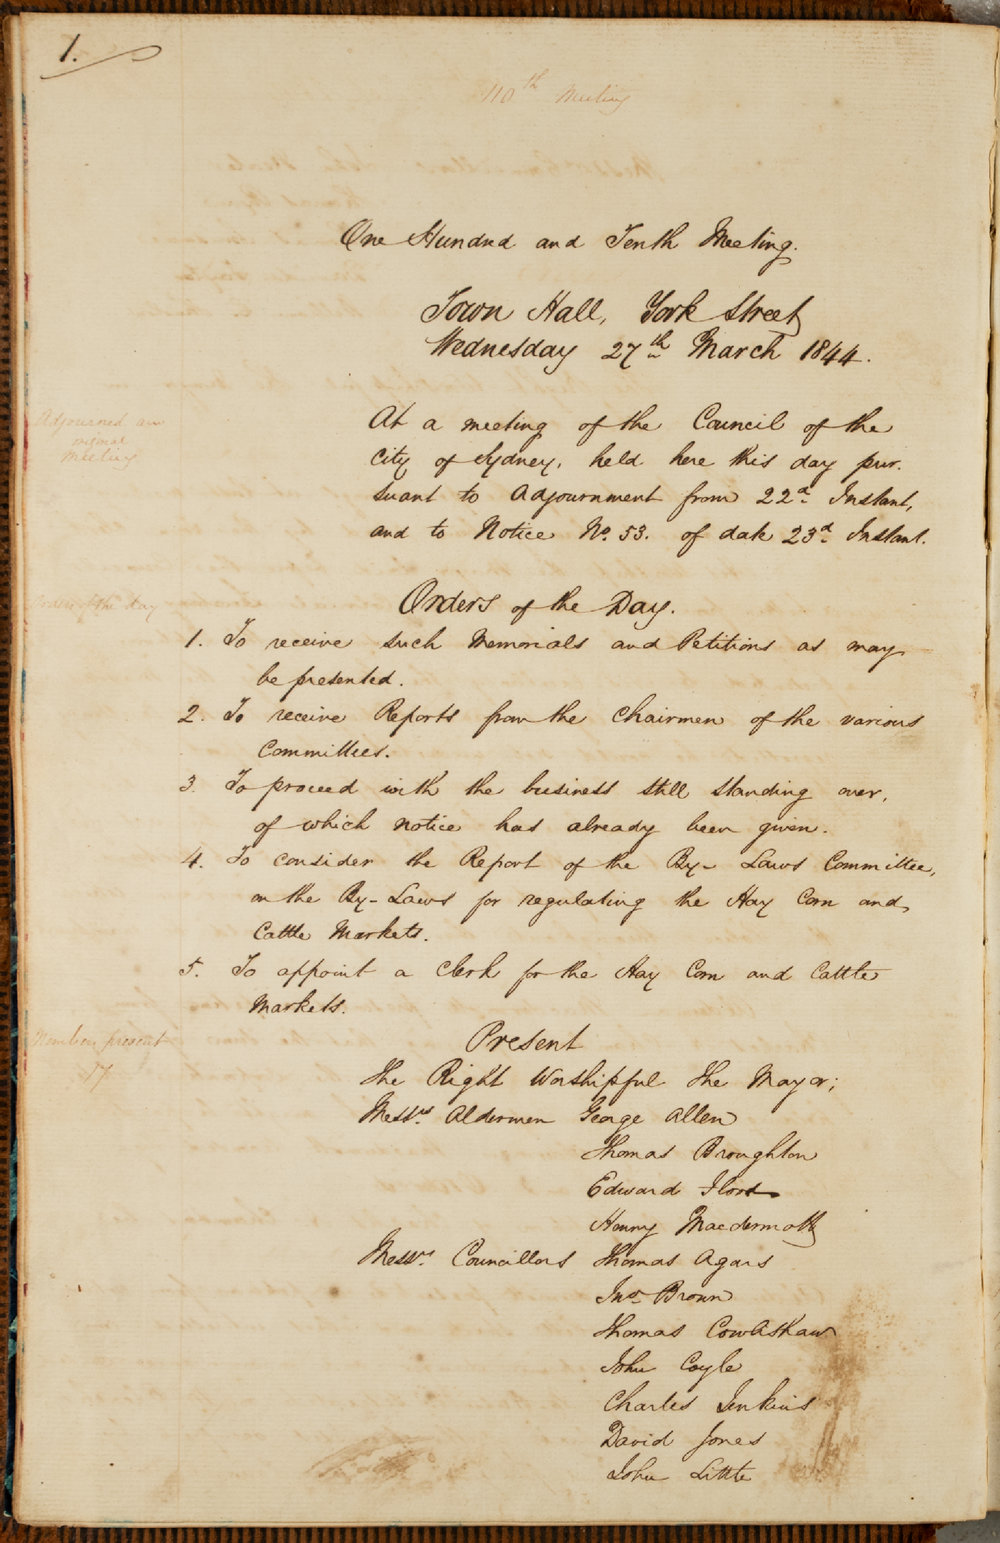 1.
110th Meeting
One Hundred and Tenth Meeting.
Town Hall, York Street
Wednesday 27th March 1844.
Adjourned an
original
Meeting
At a meeting of the Council of the
City of Sydney, held here this day pur-
suant to Adjournment from 22d Instant,
and to Notice No. 53. of date 23d Instant.
Orders of the day
Orders of the Day.
1. To receive such Memorials and Petitions as may
be presented.
2. To receive Reports from the Chairmen of the various
Committees.
3. To proceed with the business still standing over,
of which notice has already been given.
4. To consider the Report of the By-Laws Committee,
on the By-Laws for regulating the Hay Corn and
Cattle Markets.
5. To appoint a Clerk for the Hay Corn and Cattle
Markets.
Members present
17
Present
The Right Worshipful The Mayor;
Messrs. Aldermen George Allen
Thomas Broughton
Edward Flood
Henry Macdermott
Messrs. Councillors Thomas Agars
Jno. Brown
Thomas Cowlishaw
John Coyle
Charles Jenkins
David Jones
John Little